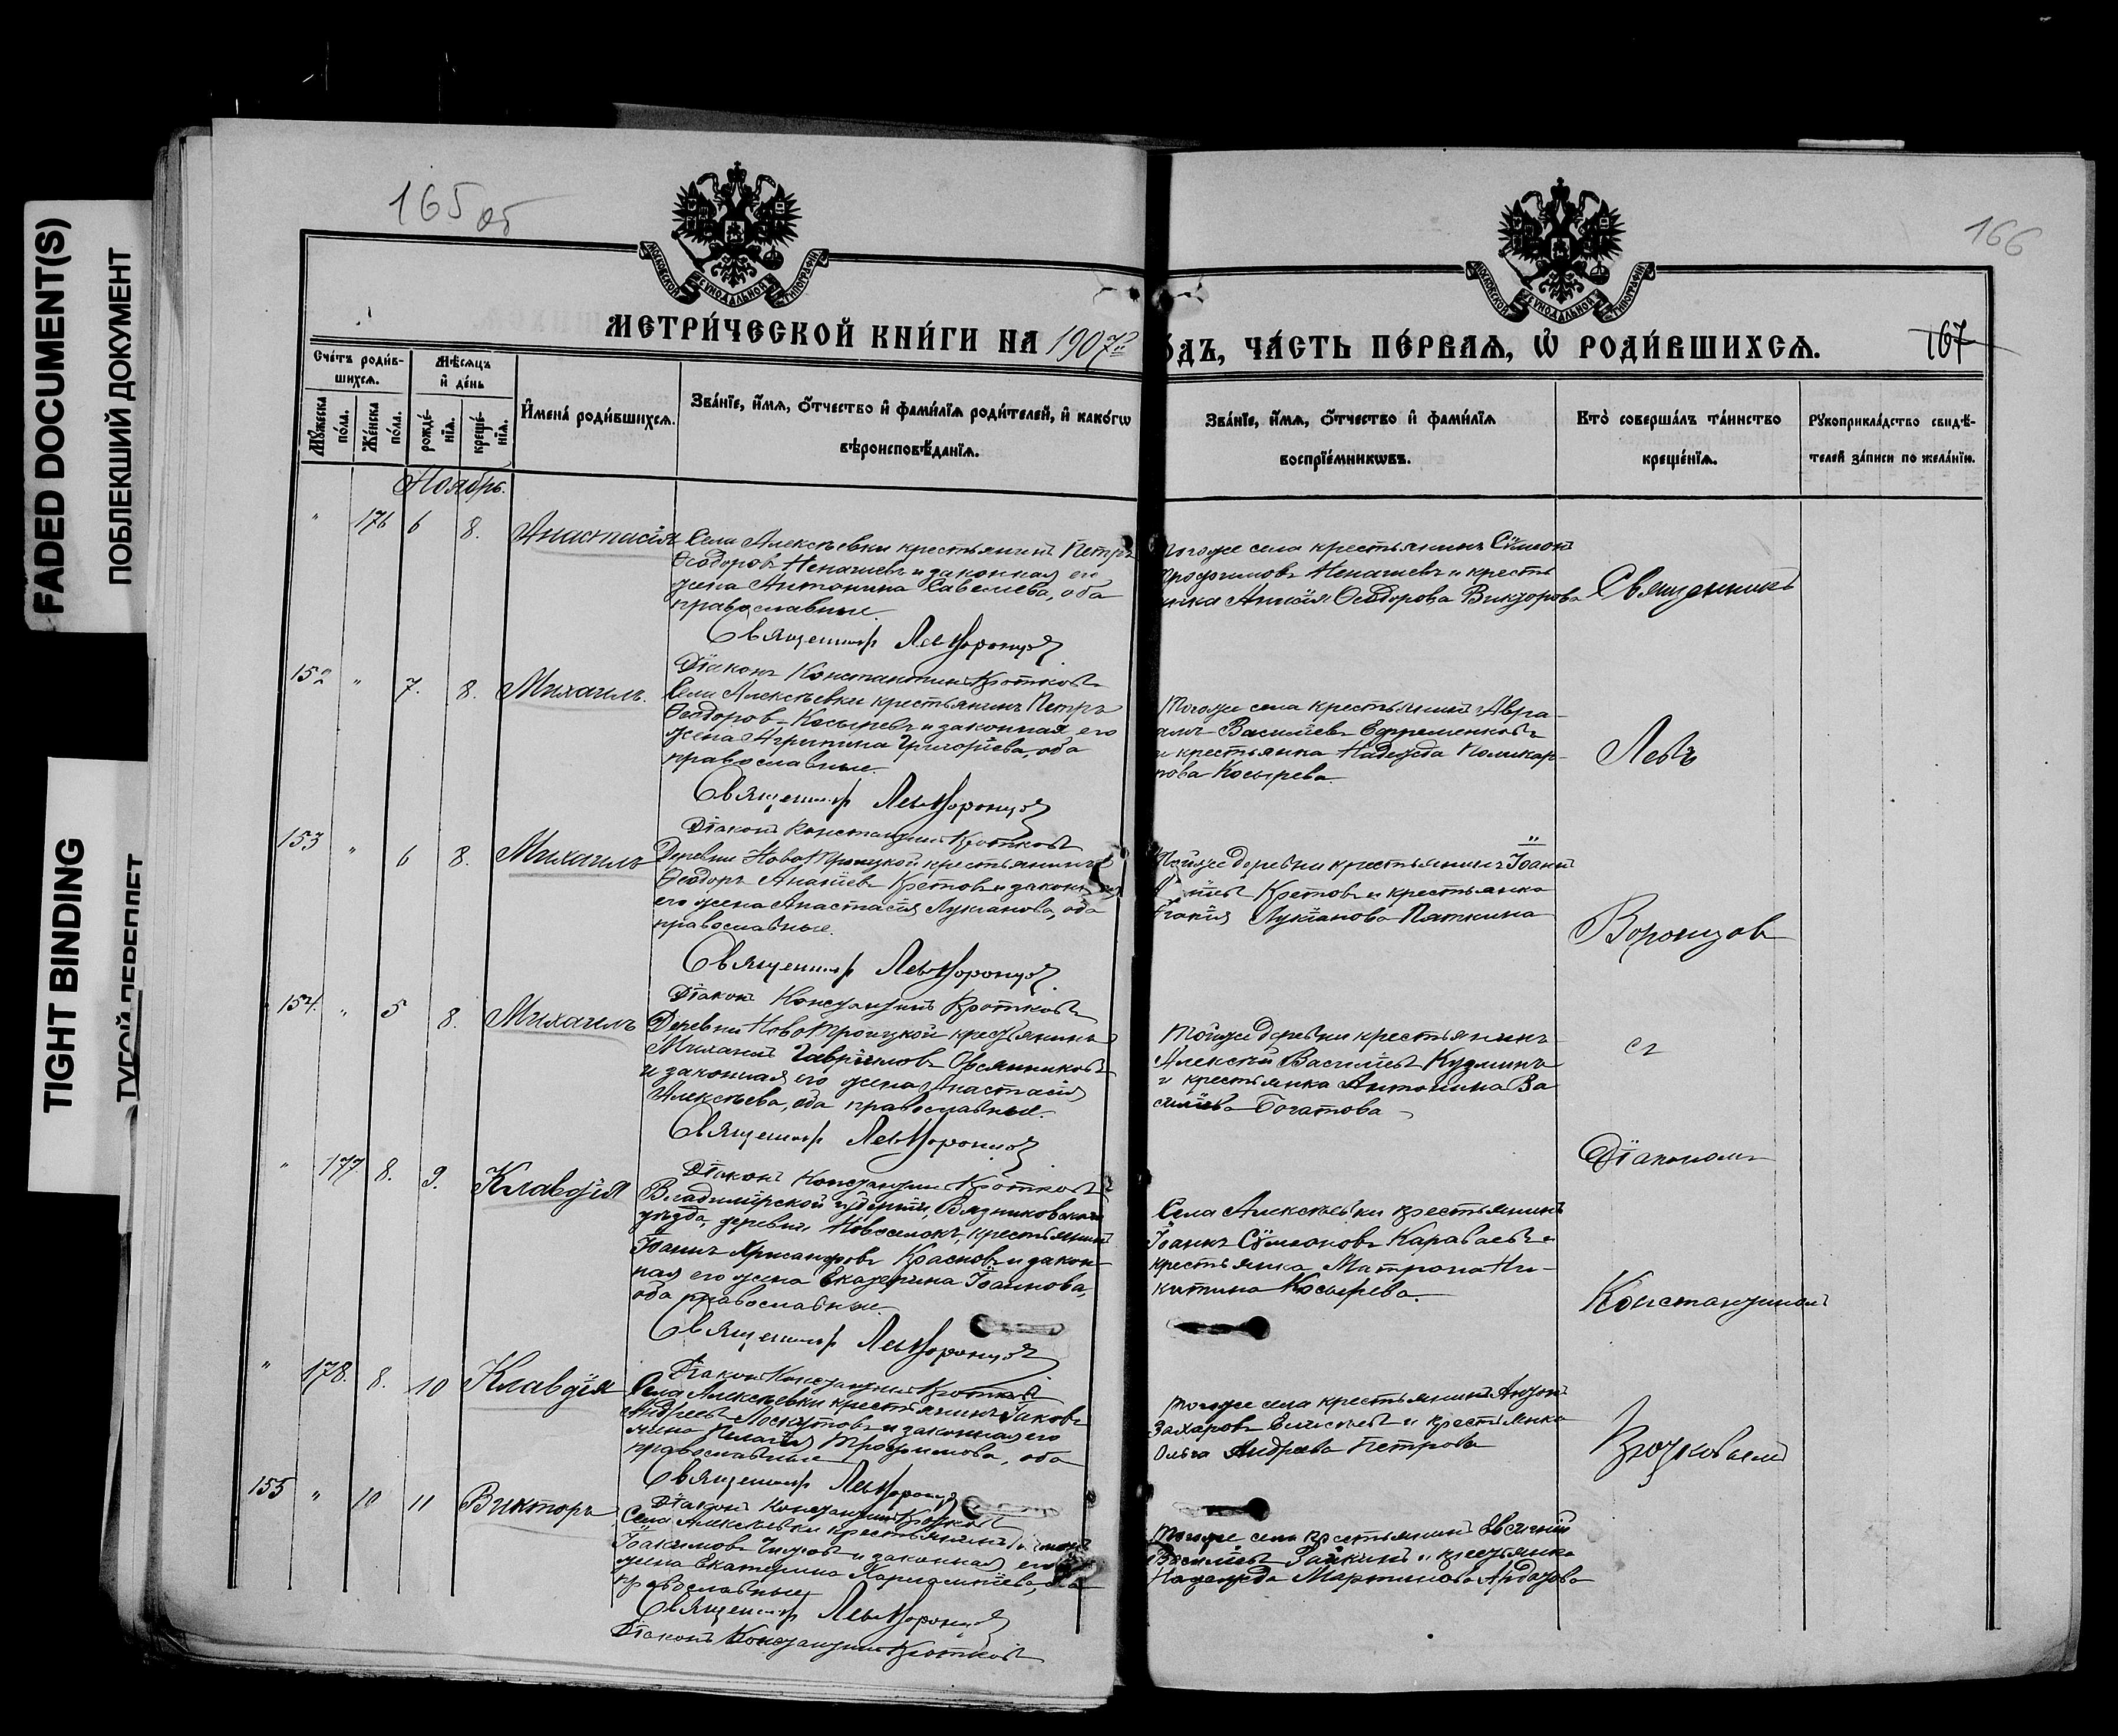 FADED DOCUMENT(S)
ПОБЛЕКШИЙ ДОКУМЕНТ
TIGHT BINDING
ТУГОЙ ПЕРЕПЛЕТ
165 об
166
МОСКОВСКОЙ СѴНОДАЛЬНОЙ ТИПОГРАФІИ
МОСКОВСКОЙ СѴНОДАЛЬНОЙ ТИПОГРАФІИ
МЕТРИ́ЧЕСКОЙ КНИ́ГИ НА 1907й
ОДЪ, ЧА́СТЬ ПЕ́РВАѦ, Ѡ҆ РОДИ́ВШИХСѦ.
167
Сче́тъ роди́в-
шихсѧ.
Мꙋ́жеска по́ла.
Же́нска по́ла.
Мѣ́сѧцъ
и҆ де́нь
рожде́-
нїѧ.
креще́-
нїѧ.
И҆мена̀ роди́вшихсѧ.
Зва́нїе, и҆́мѧ, ѻ҆́тчество и҆ фами́лїѧ роди́телей, и҆ како́гѡ
вѣроисповѣ́данїѧ.
Зва́нїе, и҆́мѧ, ѻ҆́тчество и҆ фами́лїѧ
воспрїе́мникѡвъ.
Кто̀ соверша́лъ та́инство
креще́нїѧ.
Рꙋкоприкла́дство свидѣ́-
телей за́писи по жела́нїю.
Ноябрь.
" 176 6 8. Анастасія
Села Алексѣевки крестьянинъ Петръ
Ѳеодоровъ Ненашевъ и законная его
жена Антонина Савелиева, оба
православные.
Священникъ Левъ Воронцов
Діаконъ Константин Кротковъ
тогоже села крестьянинъ Сѵмеонъ
Трофимовъ Ненашевъ и кресть
янка Анисія Ѳеодорова Викторова
152 " 7. 8. Михаилъ.
Села Алексѣевки крестьянинъ Петръ
Ѳеодоров Косыревъ и законная его
жена Агрипина Григоріева, оба
православные.
Священникъ Левъ Воронцов
Діаконъ Константин Кротковъ
Тогоже села крестьянинъ Авра-
амъ Васильевъ Ефременковъ
и крестьянка Надежда Поликар-
пова Косырева
153 " 6 8. Михаилъ
Деревни НовоТроицкой крестьянинъ
Ѳеодоръ Ананіевъ Кретовъ и законная
его жена Анастасія Лукианова, оба
православные.
Священникъ Левъ Воронцов
Діаконъ Константинъ Кротковъ
Тойже деревни крестьянинъ Іоаннъ
Кретовъ и крестьянка
Лукіанова Паткина
154. " 5 8. Михаилъ
Деревни НовоТроицкой крестьянинъ
Михаилъ Гавріиловъ Овсянниковъ
и законная его жена Анастасія
Алексѣева, оба православные.
Священникъ Левъ Воронцов
Діаконъ Константин Кротковъ
Тойже деревни крестьянинъ
Алексѣй Васильевъ Кузминъ
и крестьянка Антонина Ва
сильева Богатова
" 177 8. 9. Клавдія
Владимірской губерніи, Вязниковскаго
уѣзда, деревни Новоселокъ, крестьянинъ
Іоаннъ Хрисанфовъ Красновъ и закон-
ная его жена Екатерина Іоаннова,
оба православные.
Священникъ Левъ Воронцов
Діаконъ Константин Кротковъ
Села Алексѣевки крестьянинъ
Іоаннъ Сѵмеоновъ Караваевъ и
крестьянка Матрона Ни-
китина Косырева.
" 178. 8. 10 Клавдія
Села Алексѣевки крестьянинъ Іаковъ
Андреевъ Лоскутовъ и законная его
жена Пелагія Трофимова, оба
православные
Священникъ Левъ Воронцов
Діаконъ Константин Кротковъ
Тогоже села крестьянинъ Антонъ
Захаровъ Елисѣевъ и крестьянка
Ольга Андреева Петрова
155 " 10 11 Викторъ
Села Алексѣевки крестьянинъ
Іоакимовъ и законная его
жена Екатерина Харлампіева, оба
православные
Священникъ Левъ Воронцов
Діаконъ Константин Кротковъ
Тогоже села крестьянинъ Евгеній
Васильевъ и крестьянка
Надежда Мартинова
Священникъ
Левъ
Воронцов
съ
Діакономъ
Константиномъ
Кротковымъ